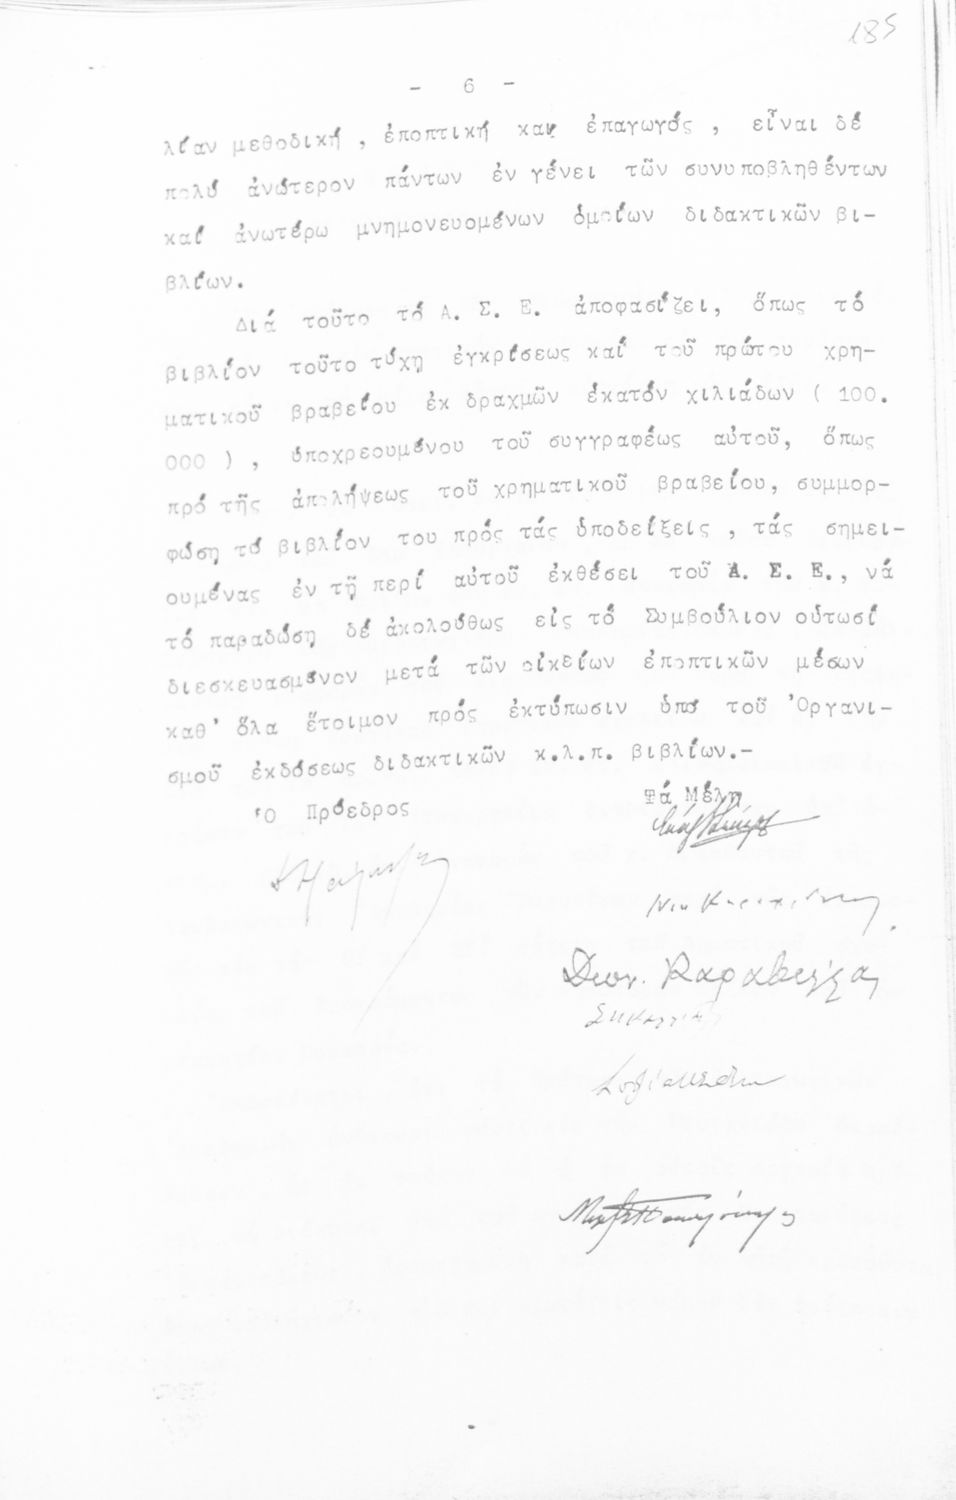 185
- 6 -
λίαν μεθοδική , ἐποπτική και ἐπαγωγός , εἶναι δέ
πολύ ἀνώτερον πάντων ἐν γένει τῶν συνυποβληθέντων
καί ἀνωτέρω μνημονευομένων ὁμοίων διδακτικῶν βι-
βλίων.
Διά τοῦτο τό Α. Σ. Ε. ἀποφασίζει, ὅπως τό
βιβλίον τοῦτο τύχῃ ἐγκρίσεως καί τοῦ πρώτου χρη-
ματικοῦ βραβείου ἐκ δραχμῶν ἑκατόν χιλιάδων ( 100.
000 ) , ὑποχρεουμένου τοῦ συγγραφέως αὐτοῦ, ὅπως
πρό τῆς ἀπολήψεως τοῦ χρηματικοῦ βραβείου, συμμορ-
φώσῃ τό βιβλίον του πρός τάς ὑποδείξεις , τάς σημει-
ουμένας ἐν τῇ περί αὐτοῦ ἐκθέσει τοῦ Α. Σ. Ε., νά
τό παραδώσῃ δέ ἀκολούθως εἰς τό Συμβούλιον οὑτωσί
διεσκευασμένον μετά τῶν οἰκείων ἐποπτικῶν μέσων
καθ' ὅλα ἕτοιμον πρός ἐκτύπωσιν ὑπό τοῦ Ὀργανι-
σμοῦ ἐκδόσεως διδακτικῶν κ.λ.π. βιβλίων.-
Ὁ Πρόεδρος Τά Μέλη
Διον. Καραβίας